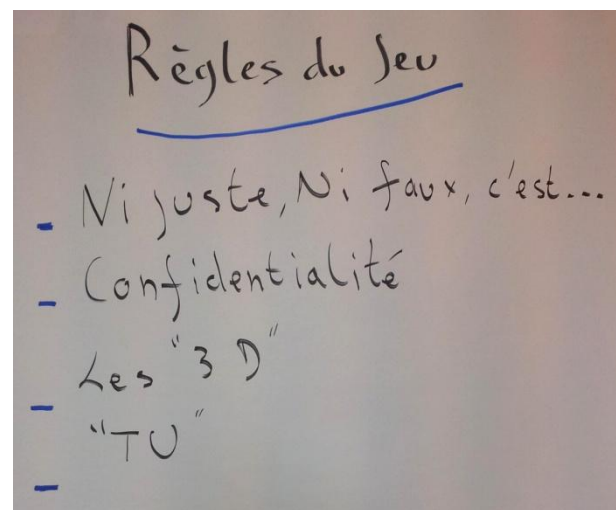 Règles du Jeu
- Ni juste, Ni faux, c'est...
- Confidentialité
- Les "3 D"
- "TU"
-